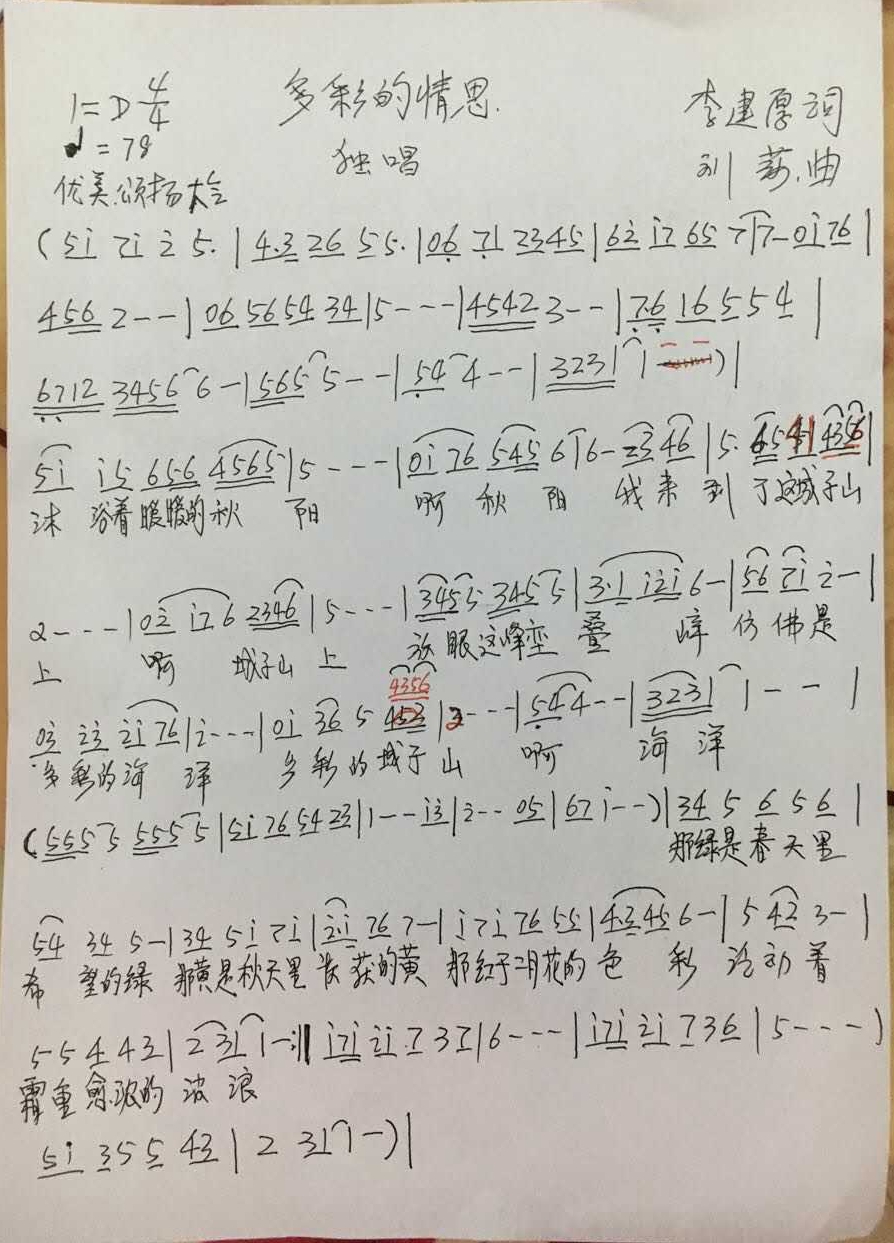 1=D 4/4 多彩的情思. 李建厚词
♩=78 独唱 刘 曲
优美.颂扬
(5i 7i 2 5.|4.3 26 55.|06 71 2345|62 i7 65 7|7-0i76|
456 2--|06 5654 34|5---|4542 3--|7.6 16 5 5 4|
6712 3456 6-|565 5--|54 4--|3231 1 )|
5i i5 656 4565|5---|0i 76 545 6|6-23 46|5. 4356|
沐 浴着暖暖的秋 阳 啊 秋 阳 我来 到 了这城子山
2---|02 i76 2346|5---|3455 345 5|3.1 i2i 6-|56 7i 2-|
上 啊 城子山 上 放眼这峰峦 叠 嶂 仿佛是
4356
03 23 2i 76|i---|0i 36 5 |2---|544--|3231 1-- |
多彩的海 洋 多彩的城子山 啊 海 洋
(5555 5555|5i 76 54 23|1--i3|2--05|67 i--)|34 5 6 5 6|
那绿是春天里
54 34 5-|34 5i 7i|2i 76 7-|i7i 76 55|4.345 6-|5 42 3-|
希 望的绿 那黄是秋天里 收获的黄 那红于二月花的 色 彩 涌动着
5 5 4 43|2 31 1-:‖i7i 2i 7 3 7|6---|i7i 2i 7 3 6|5---)
霜重愈浓的 波 浪
5i 35 5 43|2 31 1-)|